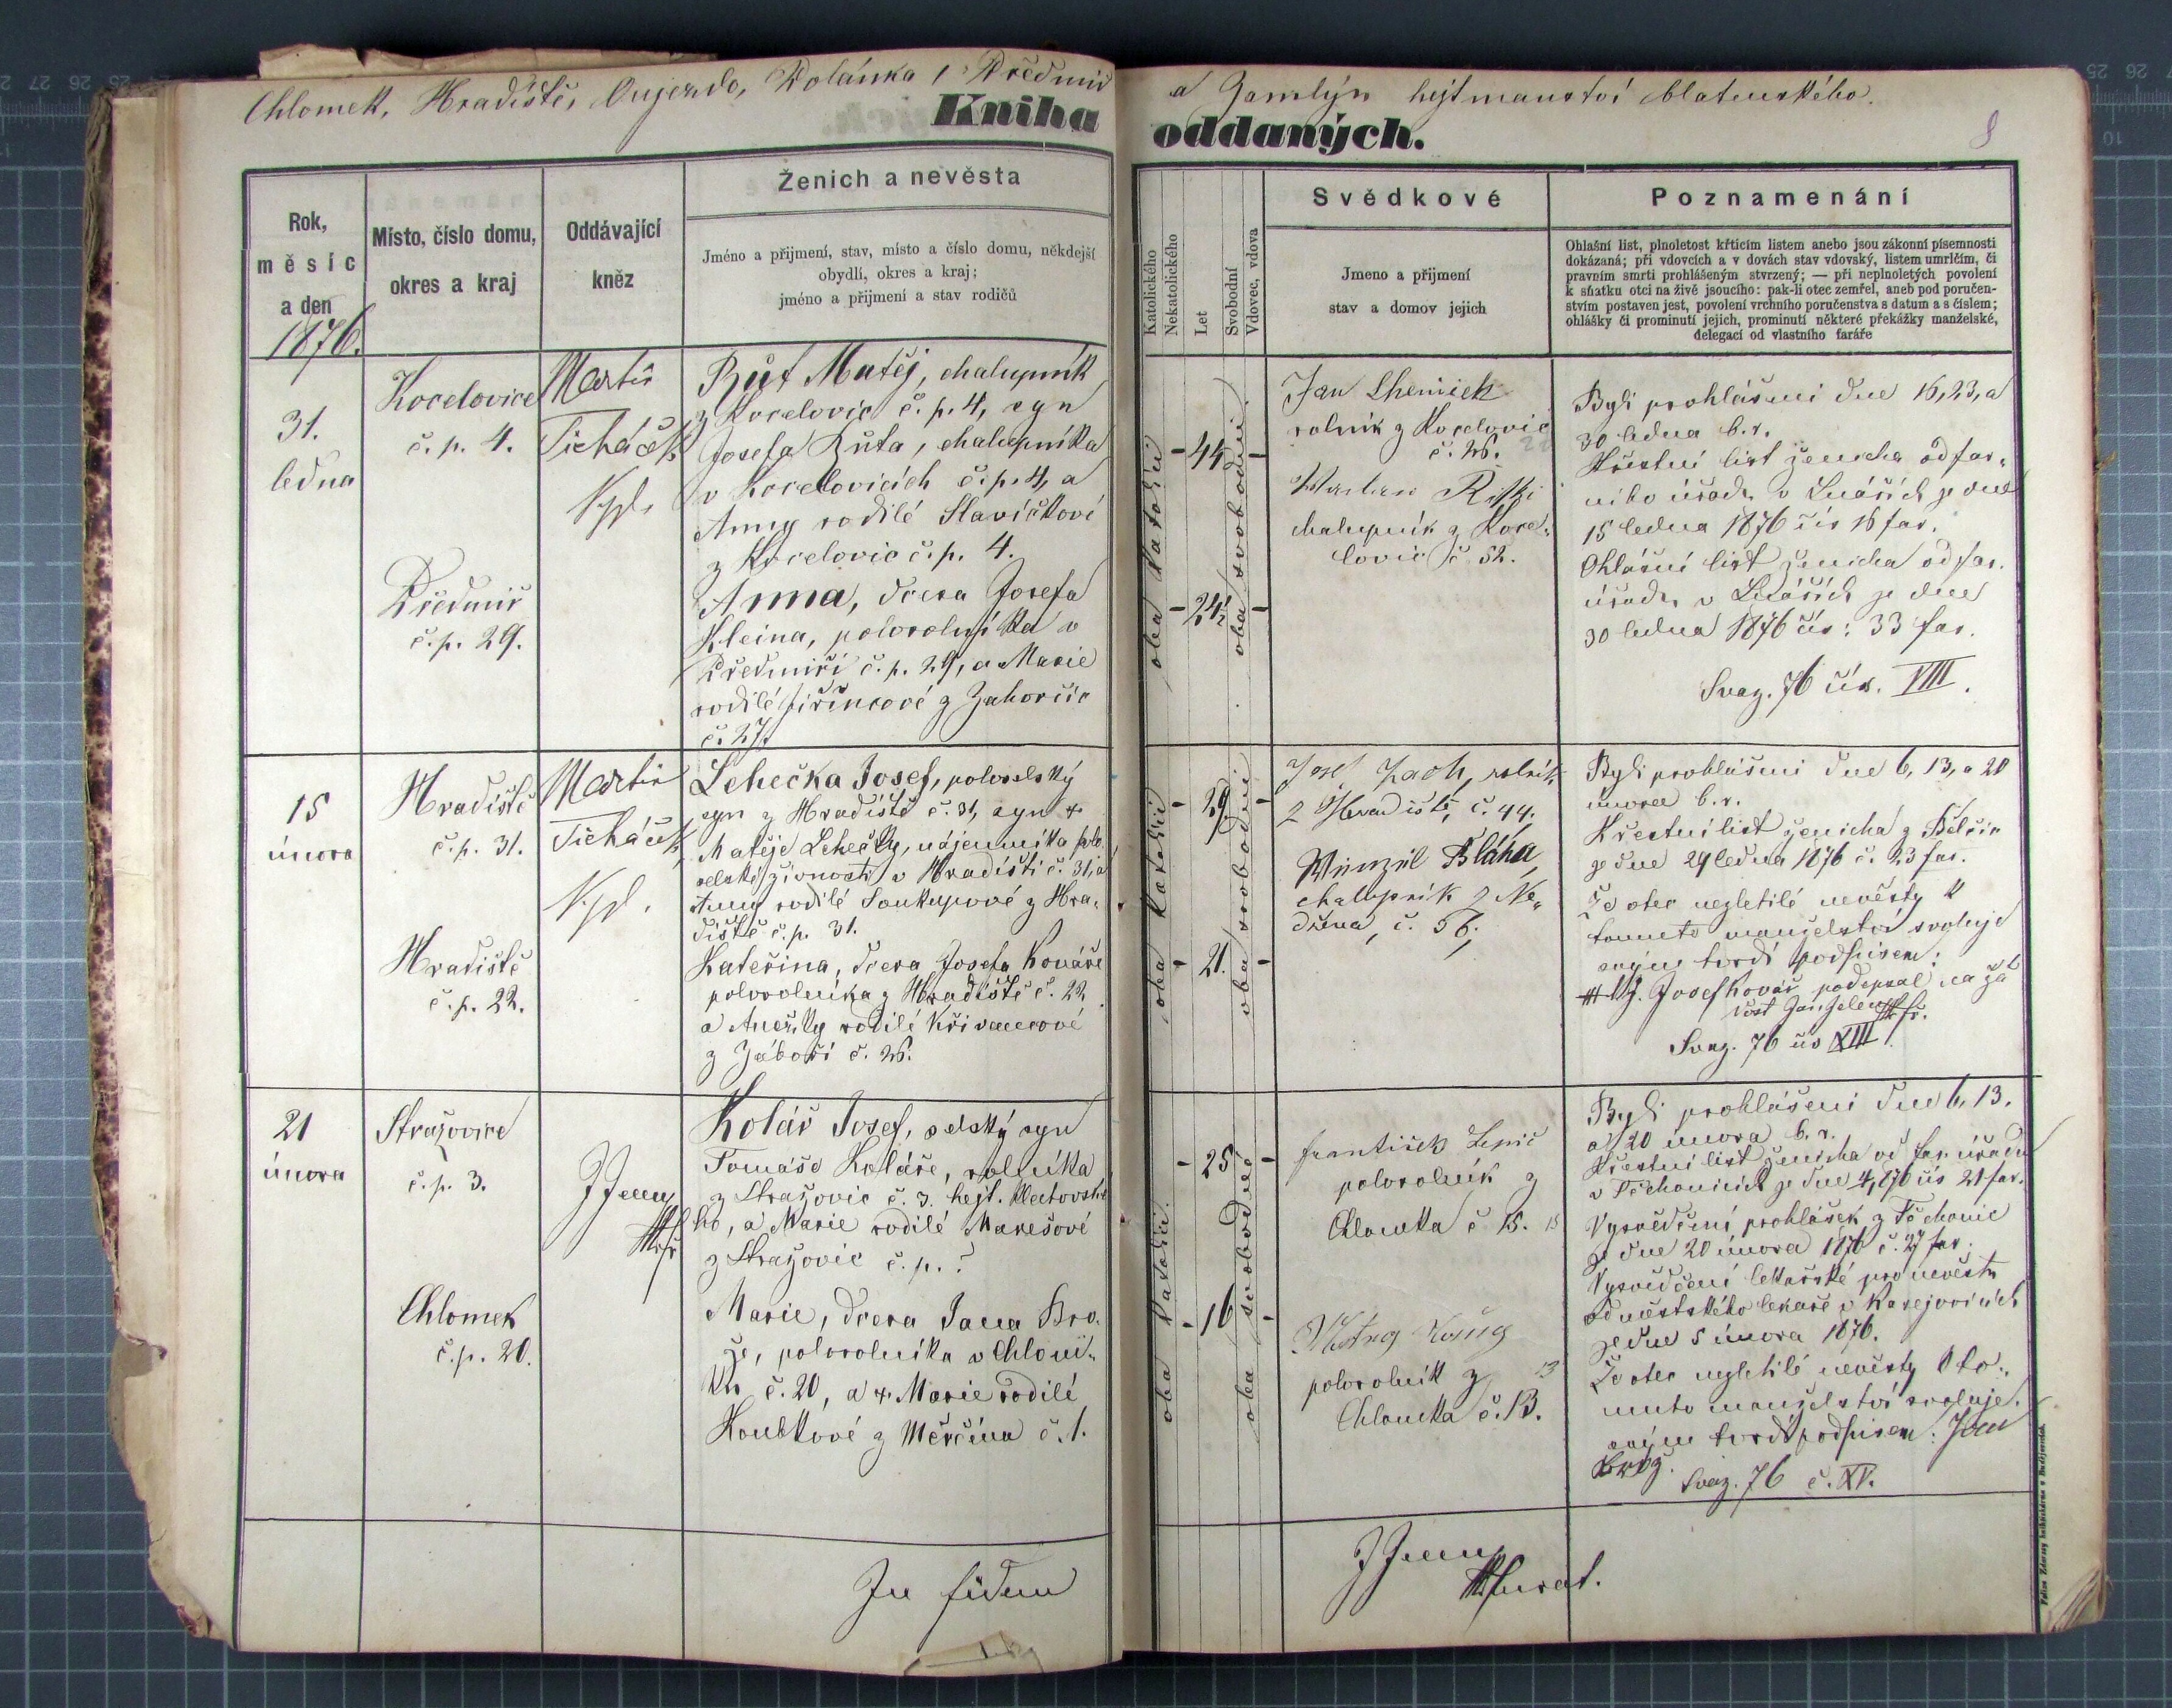 Chlomek, Hradiště, Oujezdo, Dolánka, Předmíř
a Zamlýn hejtmanství blatenského.
Kniha
oddaných.
8
Rok,
měsíc
a den
1876.
Místo, číslo domu,
okres a kraj
Oddávající
kněz
Ženich a nevěsta
Jméno a přijmení, stav, místo a číslo domu, někdejší
obydlí, okres a kraj;
jméno a přijmení a stav rodičů
Katolického
Nekatolického
Let
Svobodní
Vdovec, vdova
Svědkové
Jmeno a přijmení
stav a domov jejich
Poznamenání
Ohlašní list, plnoletost křticím listem anebo jsou zákonní písemnosti
dokázaná; při vdovcích a v dovách stav vdovský, listem umrlčím, či
pravním smrti prohlášeným stvrzený; — při neplnoletých povolení
k sňatku otci na živě jsoucího: pak-li otec zemřel, aneb pod poručen-
stvím postaven jest, povolení vrchního poručenstva s datum a s číslem;
ohlášky či prominutí jejich, prominutí některé překážky manželské,
delegací od vlastního faráře
31.
ledna
Kocelovice
č. p. 4.
Předmíř
č. p. 29.
Martin
Ticháček
Kpl.
Růt Matěj, chalupník
z Kocelovic č. p. 4, syn
Josefa Růta, chalupníka
v Kocelovicích č. p. 4, a
Anny rodilé Slavíčkové
z Kocelovic č. p. 4.
Anna, dcera Josefa
Kleina, polorolníka v
Předmíři č. p. 29, a Marie
rodilé Jiřincové z Zahorčic
č. 27.
oba katolíci
- 44 -
- 24½ -
oba svobodní.
Jan
rolník z Kocelovic
č. 26. 22
chalupník z Koce-
lovic č 52.
Byli prohlášeni dne 16, 23, a
30 ledna b. r.
Křestní list ženicha od far-
ního úřadu v Lnářích ze dne
15 ledna 1876 čís 16 far.
Ohlášní list ženicha od far.
úřadu v Lnářích ze dne
30 ledna 1876 čís: 33 far.
Svaz. 76 čís. VIII.
15
února
Hradiště
č. p. 31.
Hradiště
č. p. 22.
Martin
Ticháček
Kpl.
Lehečka Josef, poloselský
syn z Hradiště č. 31, syn †
Matěje Lehečky, nájemníka polo-
selské živnosti v Hradišti č. 31, a
Anny rodilé Soukupové z Hra-
diště č. p. 31.
Kateřina, dcera Josefa Kováře
polorolníka z Hradiště č. 22
a Anežky rodilé Křivancové
z Záboří č. 26.
oba katolíci
- 29. -
- 21. -
oba svobodní
Josef Zach, rolník
z Hradiště, č. 44,
Bláha,
chalupník z Ne-
dřeva, č. 56,
Byli prohlášeni dne 6, 13, a 20
února b. r.
Křestní list ženicha z Bělčic
ze dne 29 ledna 1876 č. 23 far.
Že otec nezletilé nevěsty k
tomuto manželství svoluje
svým tvrdí podpisem:
††† Josef Kovář podepsal na žá
dost Jan Jelen
Svaz. 76 čís XIII.
21
února
Stražovice
č. p. 3.
Chlomek
č. p. 20.
Kolář Josef, selský syn
Tomáše Koláře, rolníka
z Stražovic č. 3. hejt. klatovské
ho, a Marie rodilé Marešové
z Stražovic č. p. ?
Marie, dcera Jana Bro-
že, polorolníka v Chlom-
ku č. 20, a † Marie rodilé
Houbkové z Měrčína č. 1.
oba katolíci.
- 25 -
- 16 -
oba svobodné
František Lepič
polorolník z
Chlomka č 15. 15
polorolník z 13
Chlomka č. 13.
Byli prohlášeni dne 6, 13.
a 20 února b. r.
Křestní list ženicha od far. úřadu
v Těchonicích ze dne 4, 876 čís 21 far.
Vysvědčení prohlášek z Těchonic
ze dne 20 února 1876 č. 27 far.
Vysvědčení lékařské pro nevěstu
od městského lékaře v Kasejovicích
ze dne 5 února 1876.
Že otec nezletilé nevěsty k to-
muto manželství svoluje.
svým tvrdí podpisem: Jan
Brož.
Svaz. 76 č. XV.
In fidem